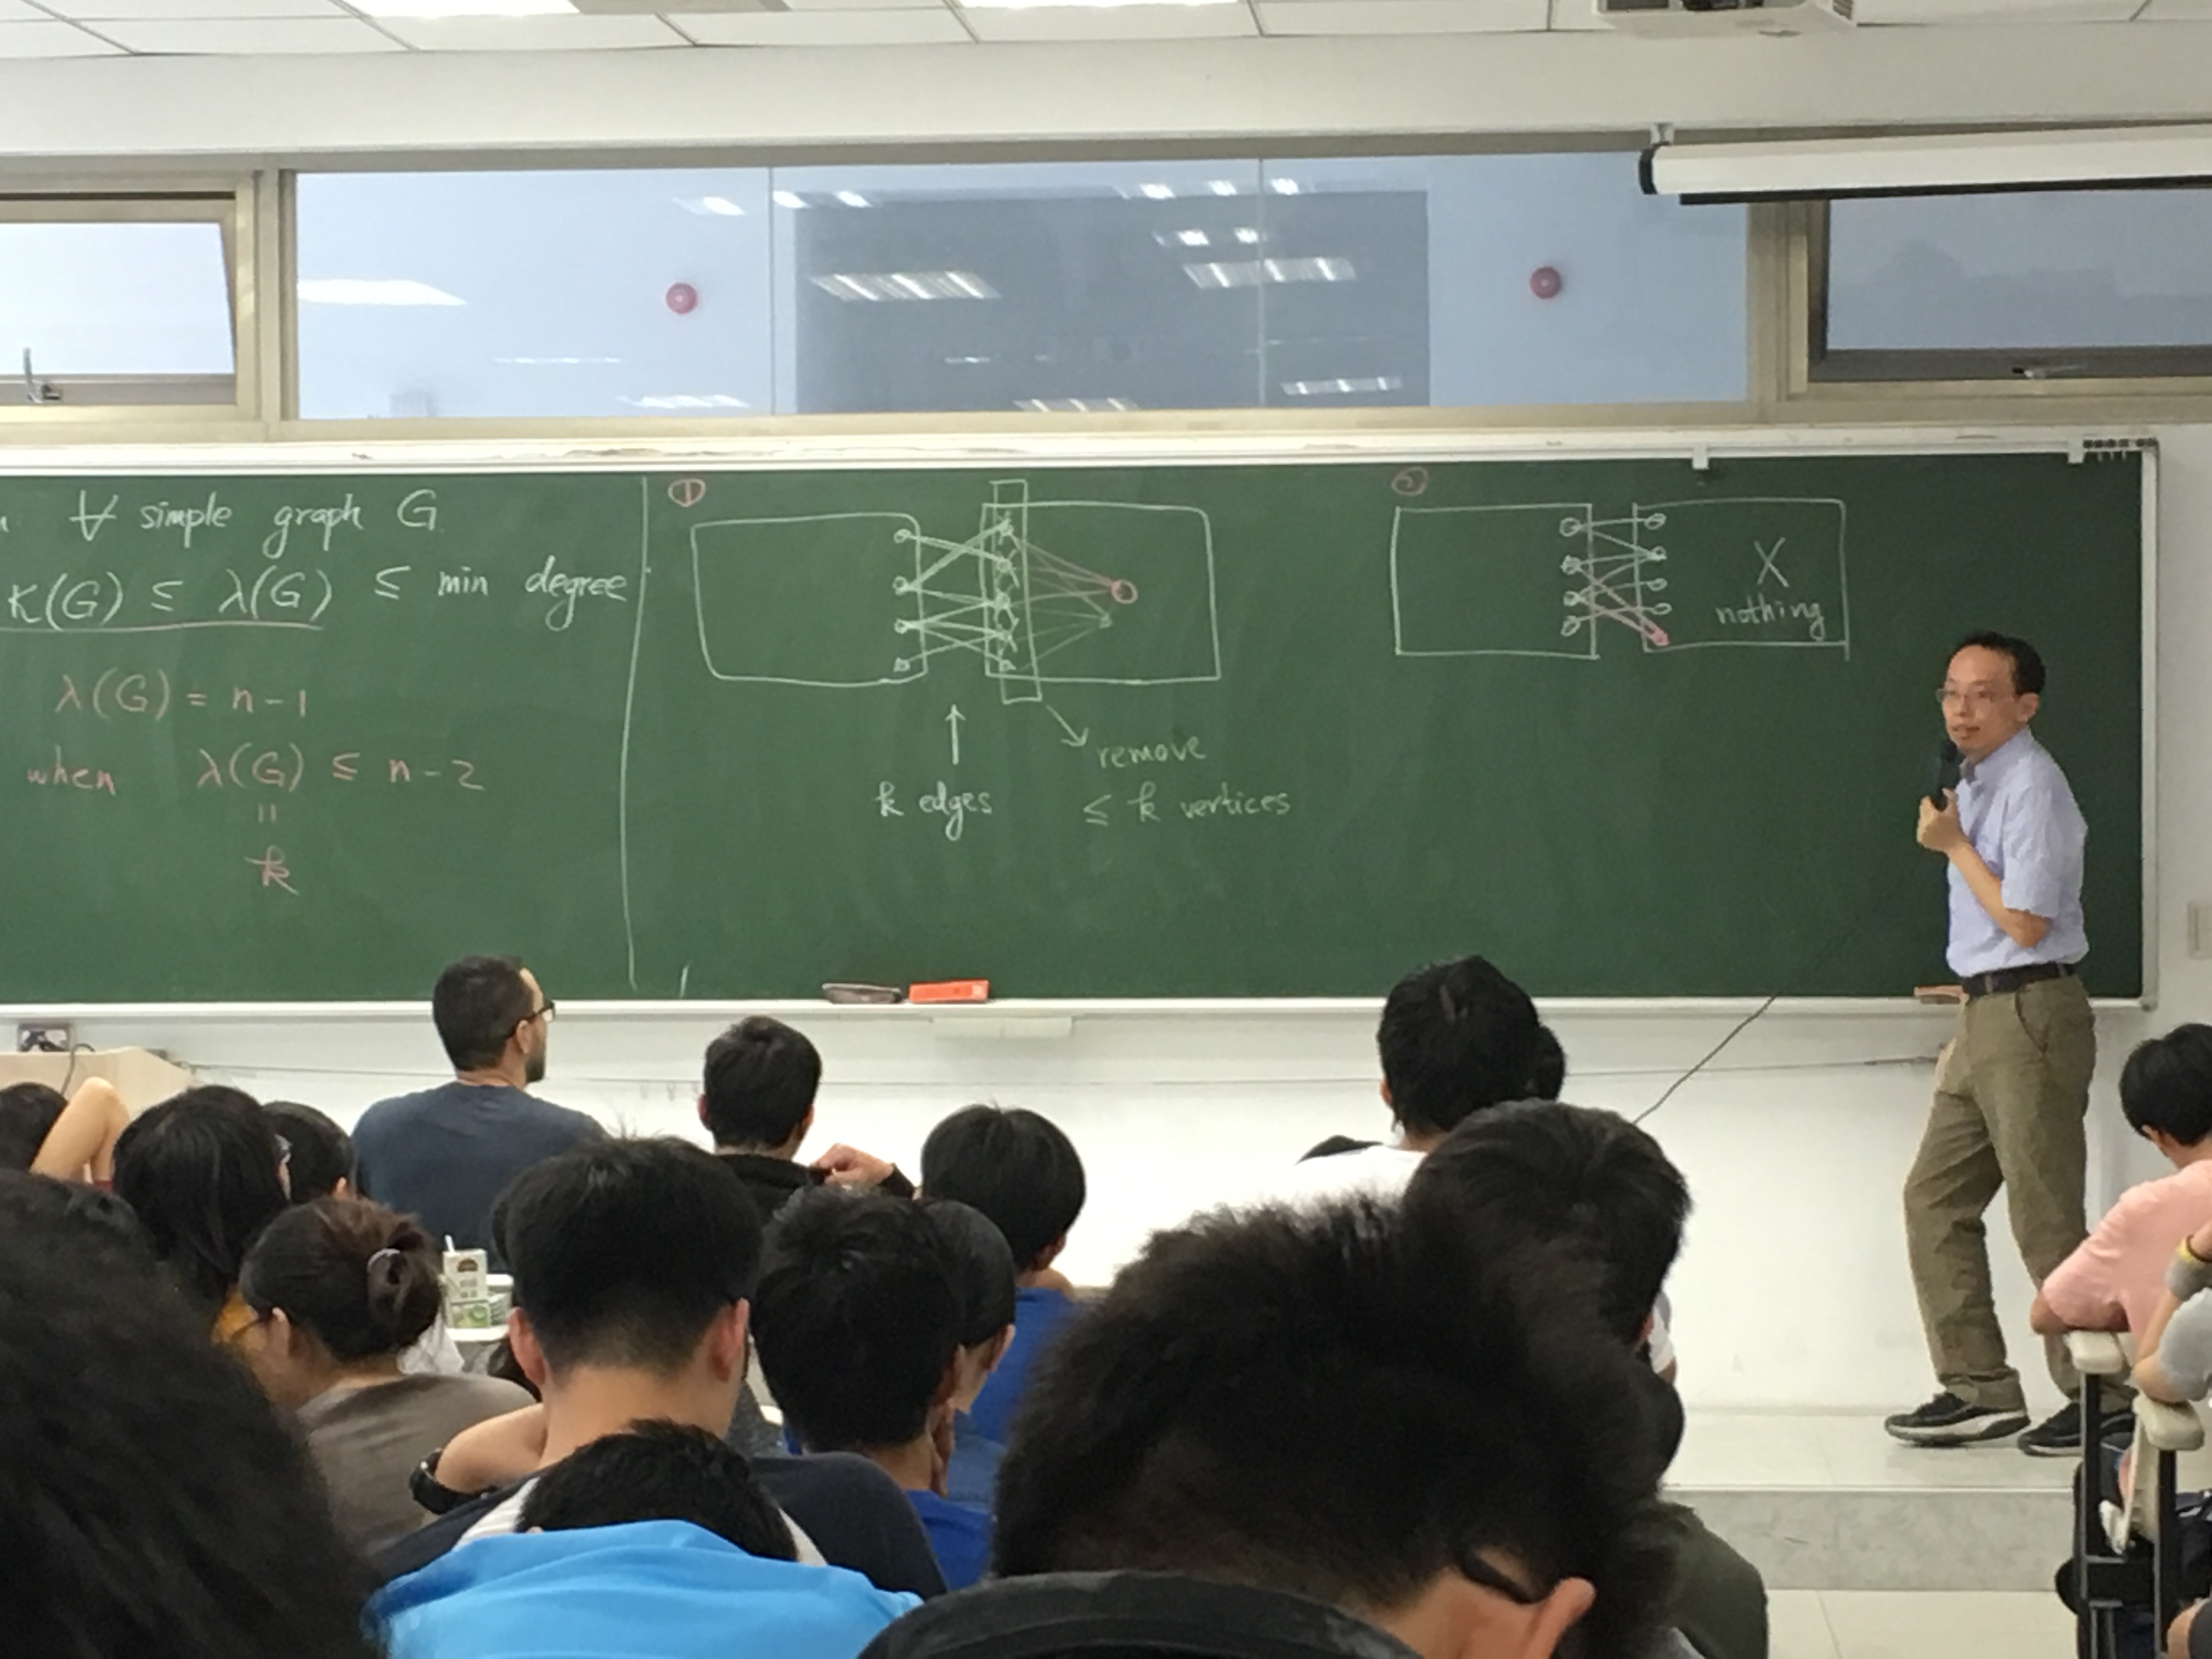 ∀ simple graph G
K(G) ≤ λ(G) ≤ min degree
λ(G) = n-1
when λ(G) ≤ n-2
"
k
①
k edges
remove
≤ k vertices
②
X
nothing